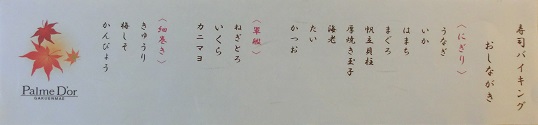 寿司バイキング
おしながき
〈にぎり〉
うなぎ
いか
はまち
まぐろ
帆立貝柱
厚焼き玉子
海老
たい
かつお
〈軍艦〉
ねぎとろ
いくら
カニマヨ
〈細巻き〉
きゅうり
梅しそ
かんぴょう
Palme D'or
GAKUENMAE